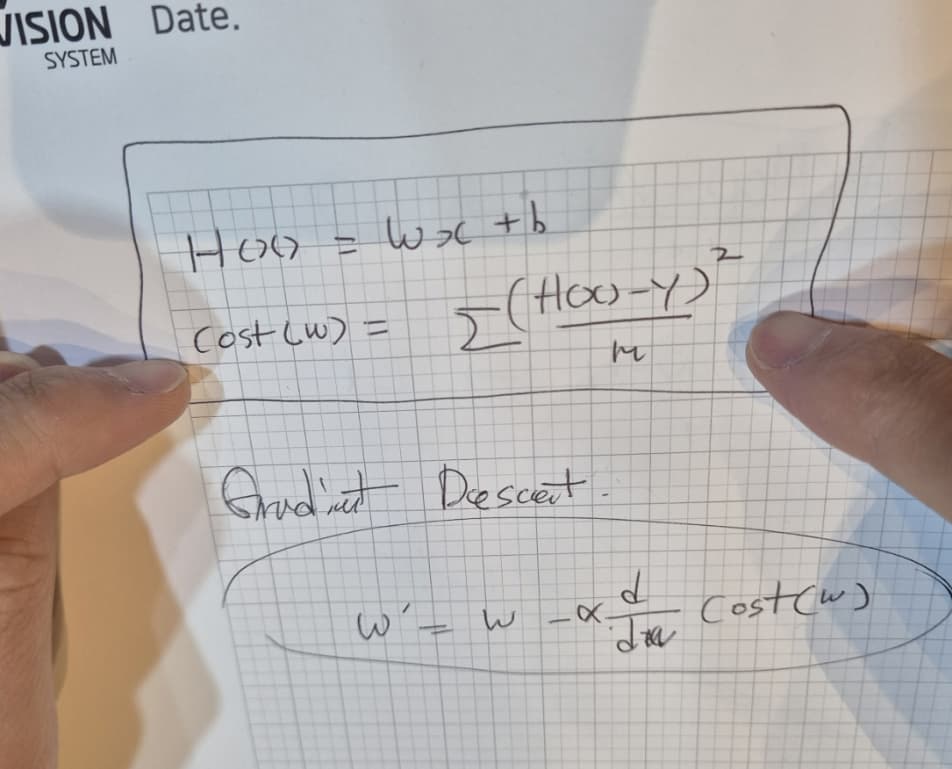 VISION Date.
SYSTEM
H(x) = Wx + b
Cost(w) = Σ (H(x)-y)² / m
Gradient Descent.
w' = w - α d/dw Cost(w)